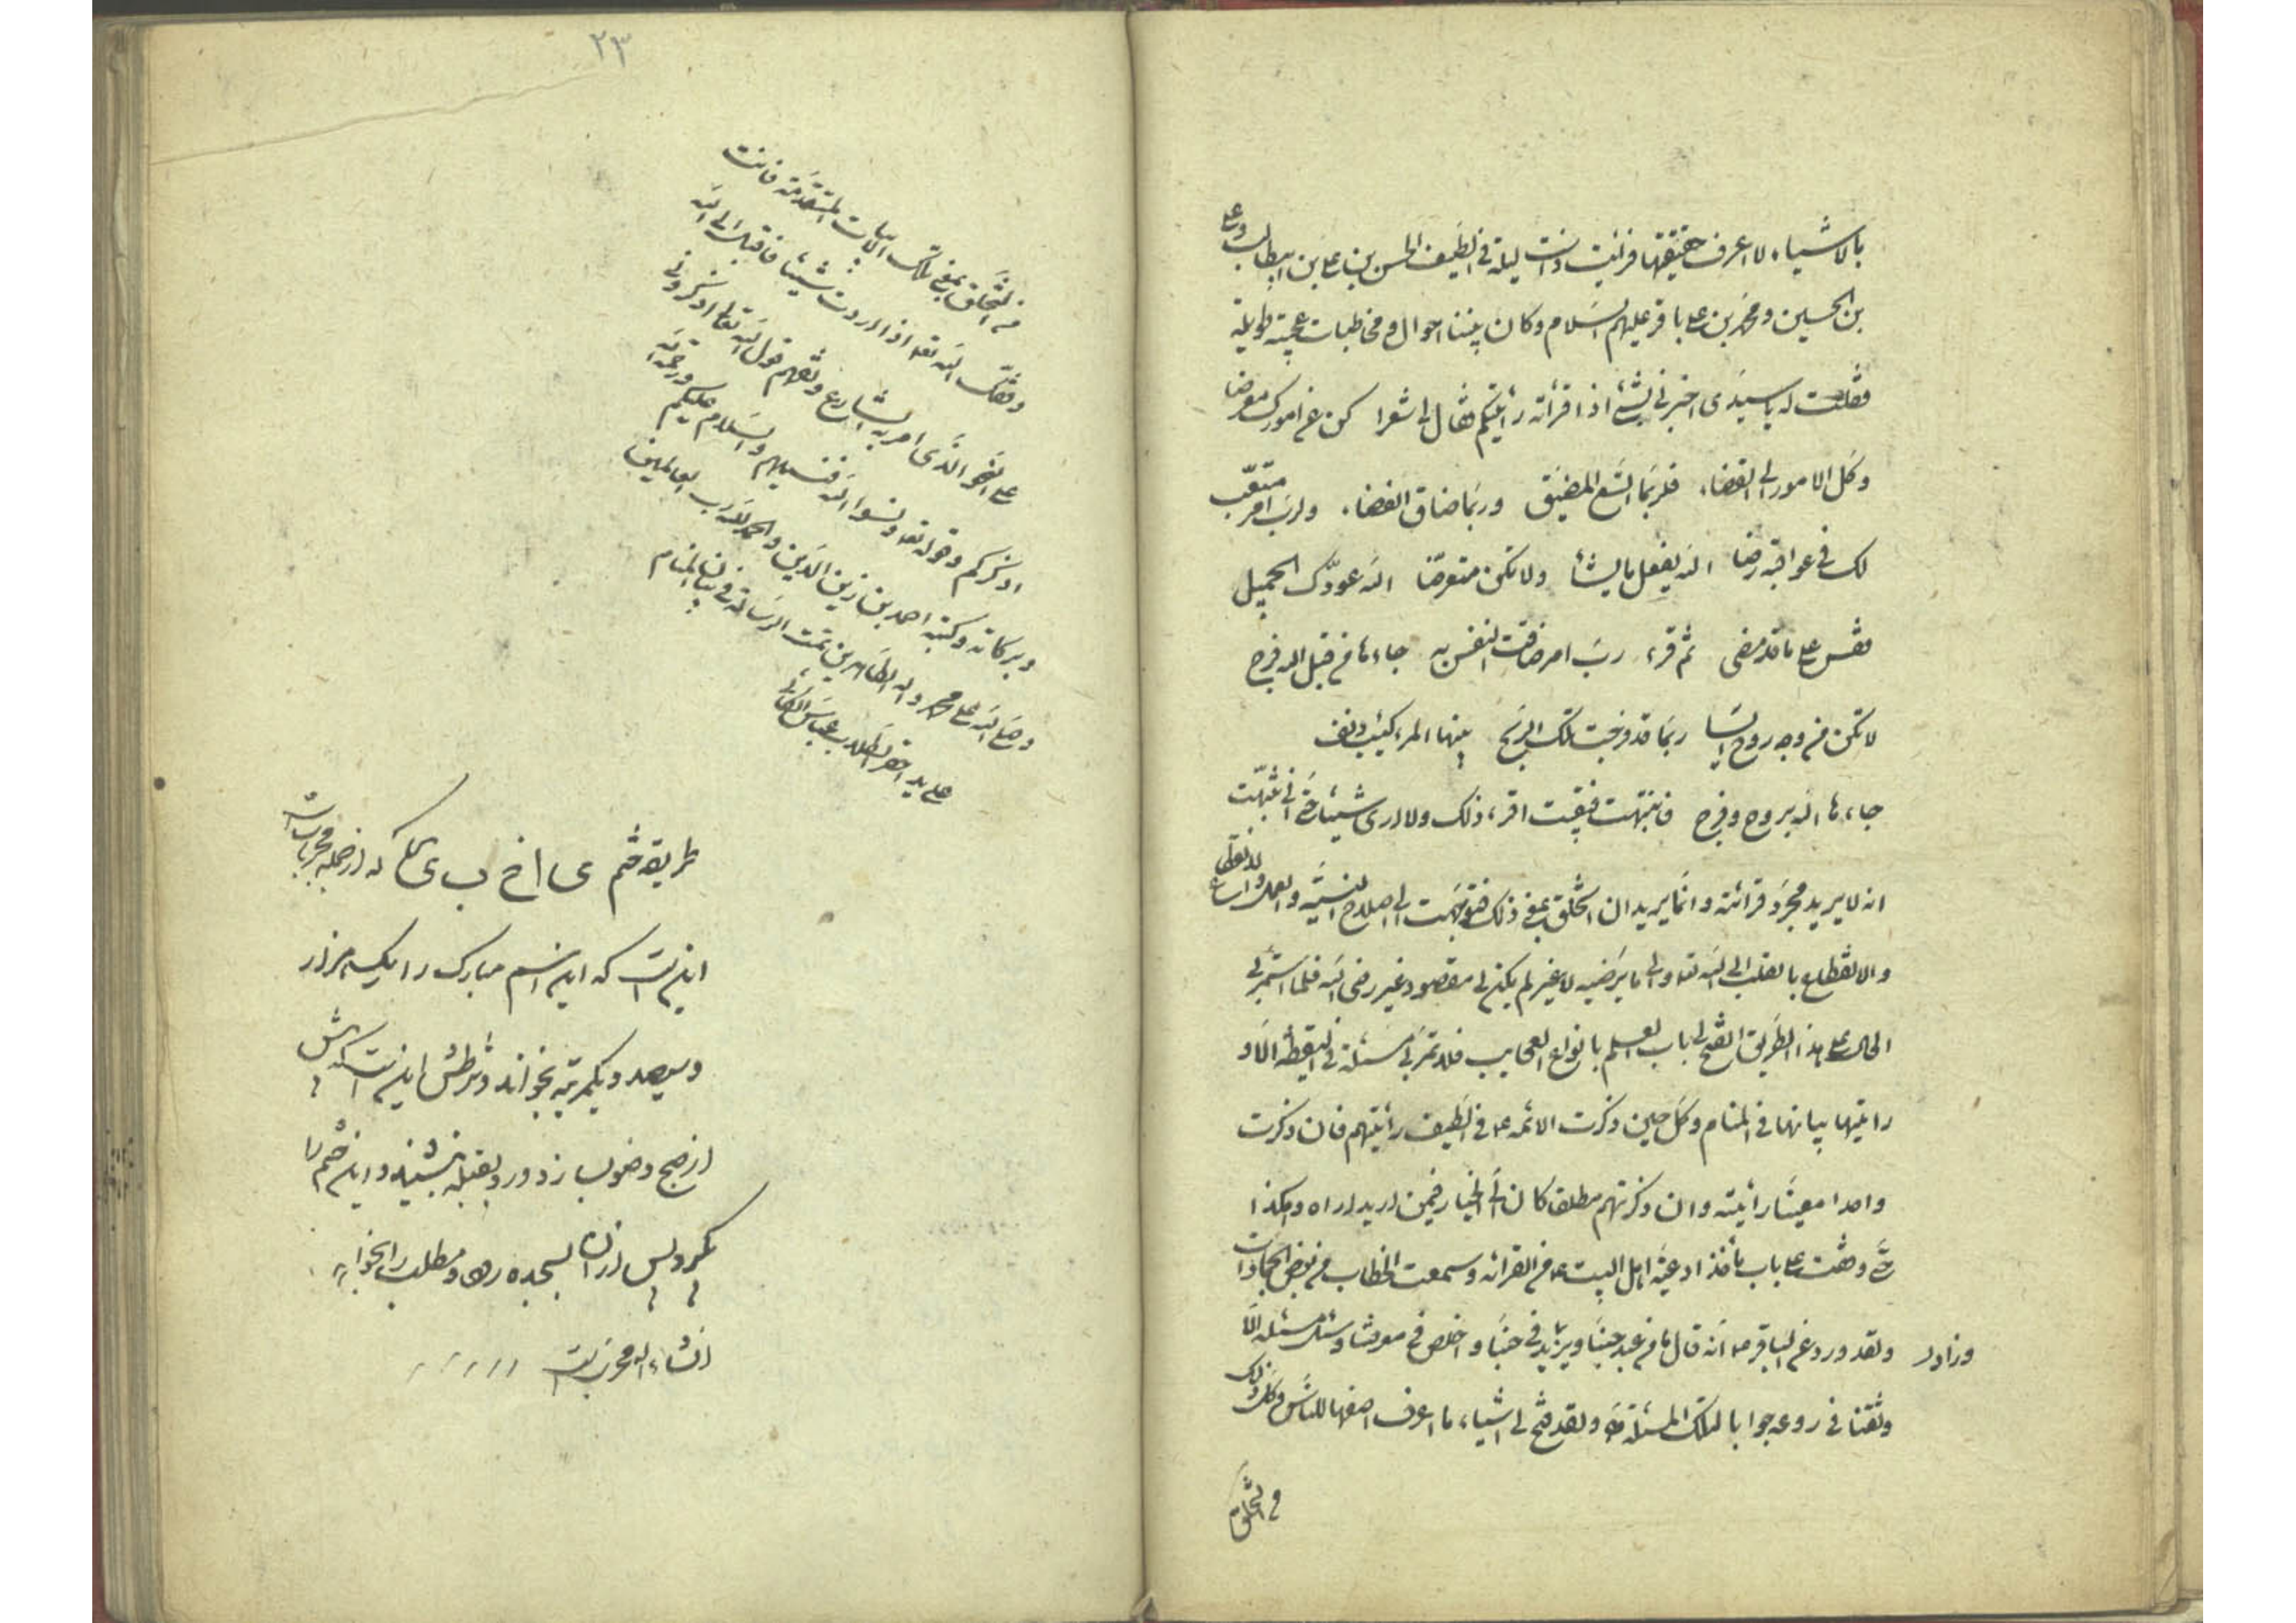 بالاشیاء لا اعرف حقیقتها فرایت ذات لیلة فی الطیف الحسن بن علی بن ابیطالب و علی
بن الحسین و محمد بن علی باقر علیهم السلام وکان بیننا احوال و مخاطبات عجیبة طویلة
فقلت له یا سیدی اخبرنی بشئ اذا قرأته رأیتکم فقال لی شعرا کن عن امورک معرضا
وکل الامور الی القضاء فلربما اتسع المضیق وربما ضاق الفضاء ولرب امر متعب
لک فی عواقبه رضا الله یفعل ما یشأ ولا تکن متعرضا الله عودک الجمیل
فقس علی ما قد مضی ثم قرء رب امر ضاقت النفس به جاءها من قبل الله فرج
لا تکن من وجه روح ایسا ربما قد فرجت تلک الرتج بینما المرء کئیب دنف
جاءه الله بروح وفرج فانتبهت فبقیت اقرء ذلک ولا اری شیئا حتی انی تنبهت
انه لا یرید مجرد قرائته وانما یرید ان اتخلق بمعنی ذلک فتوجهت الی اصلاح النیة والعمل
والانقطاع بالقلب الی الله تع والی ما یرضیه لا غیر لم یکن لی مقصود غیر رضی الله فلما استمر لی
الحال علی هذا الطریق انفتح لی باب العلم بانواع العجایب فلا تمر بی مسئلة فی الیقظة الا و
رایتها بیانها فی المنام وکل حین ذکرت الائمه ع فی الطیف رأیتهم فان ذکرت
واحدا معینا رأیته وان ذکرتهم مطلقا کان لی الخیار فیمن ارید اراه وهکذا
حتی وقفت علی باب مأخذ ادعیة اهل البیت ع من القرآن وسمعت الخطاب من بعض الجمادات
ولقد ورد عن الباقر ع انه قال ما من عبد حبنا ویزید فی حبنا واخلص فی معرفتنا وسئل مسئلة الا
وزاد
ونفثنا فی روعه جوابا لتلک المسئلة ولقد فتح لی اشیاء ما اعرف اصفها للناس وکل ذلک
من التخلق
۲۳
من التخلق بمعنی تلک الابیات المتقدمة فانت
وفقک الله تع اذا اردت شیئا فاقبل الی الله
علی النحو الذی امر به الشارع وتفهم قول الله تعالی اذکرونی
اذکرکم وقوله تع ونسوا الله فنسیهم والسلام علیکم ورحمة الله
وبرکاته وکتبه احمد بن زین الدین والحمد لله رب العالمین
وصلی الله علی محمد واله الطاهرین تمت الرسالة فی بیان المنام
علی ید احقر الطلاب عباس
طریقه ختم که از جمله مجربات است
اینست که این اسم مبارک را یک هزار
وسیصد ویکمرتبه بخواند و شرطش اینست که پیش
از صبح وضو بسازد ورو بقبله بنشیند و این ختم را
بکند وپس از آن بسجده رود و مطلب را بخواهد
انشاءالله مجرب است